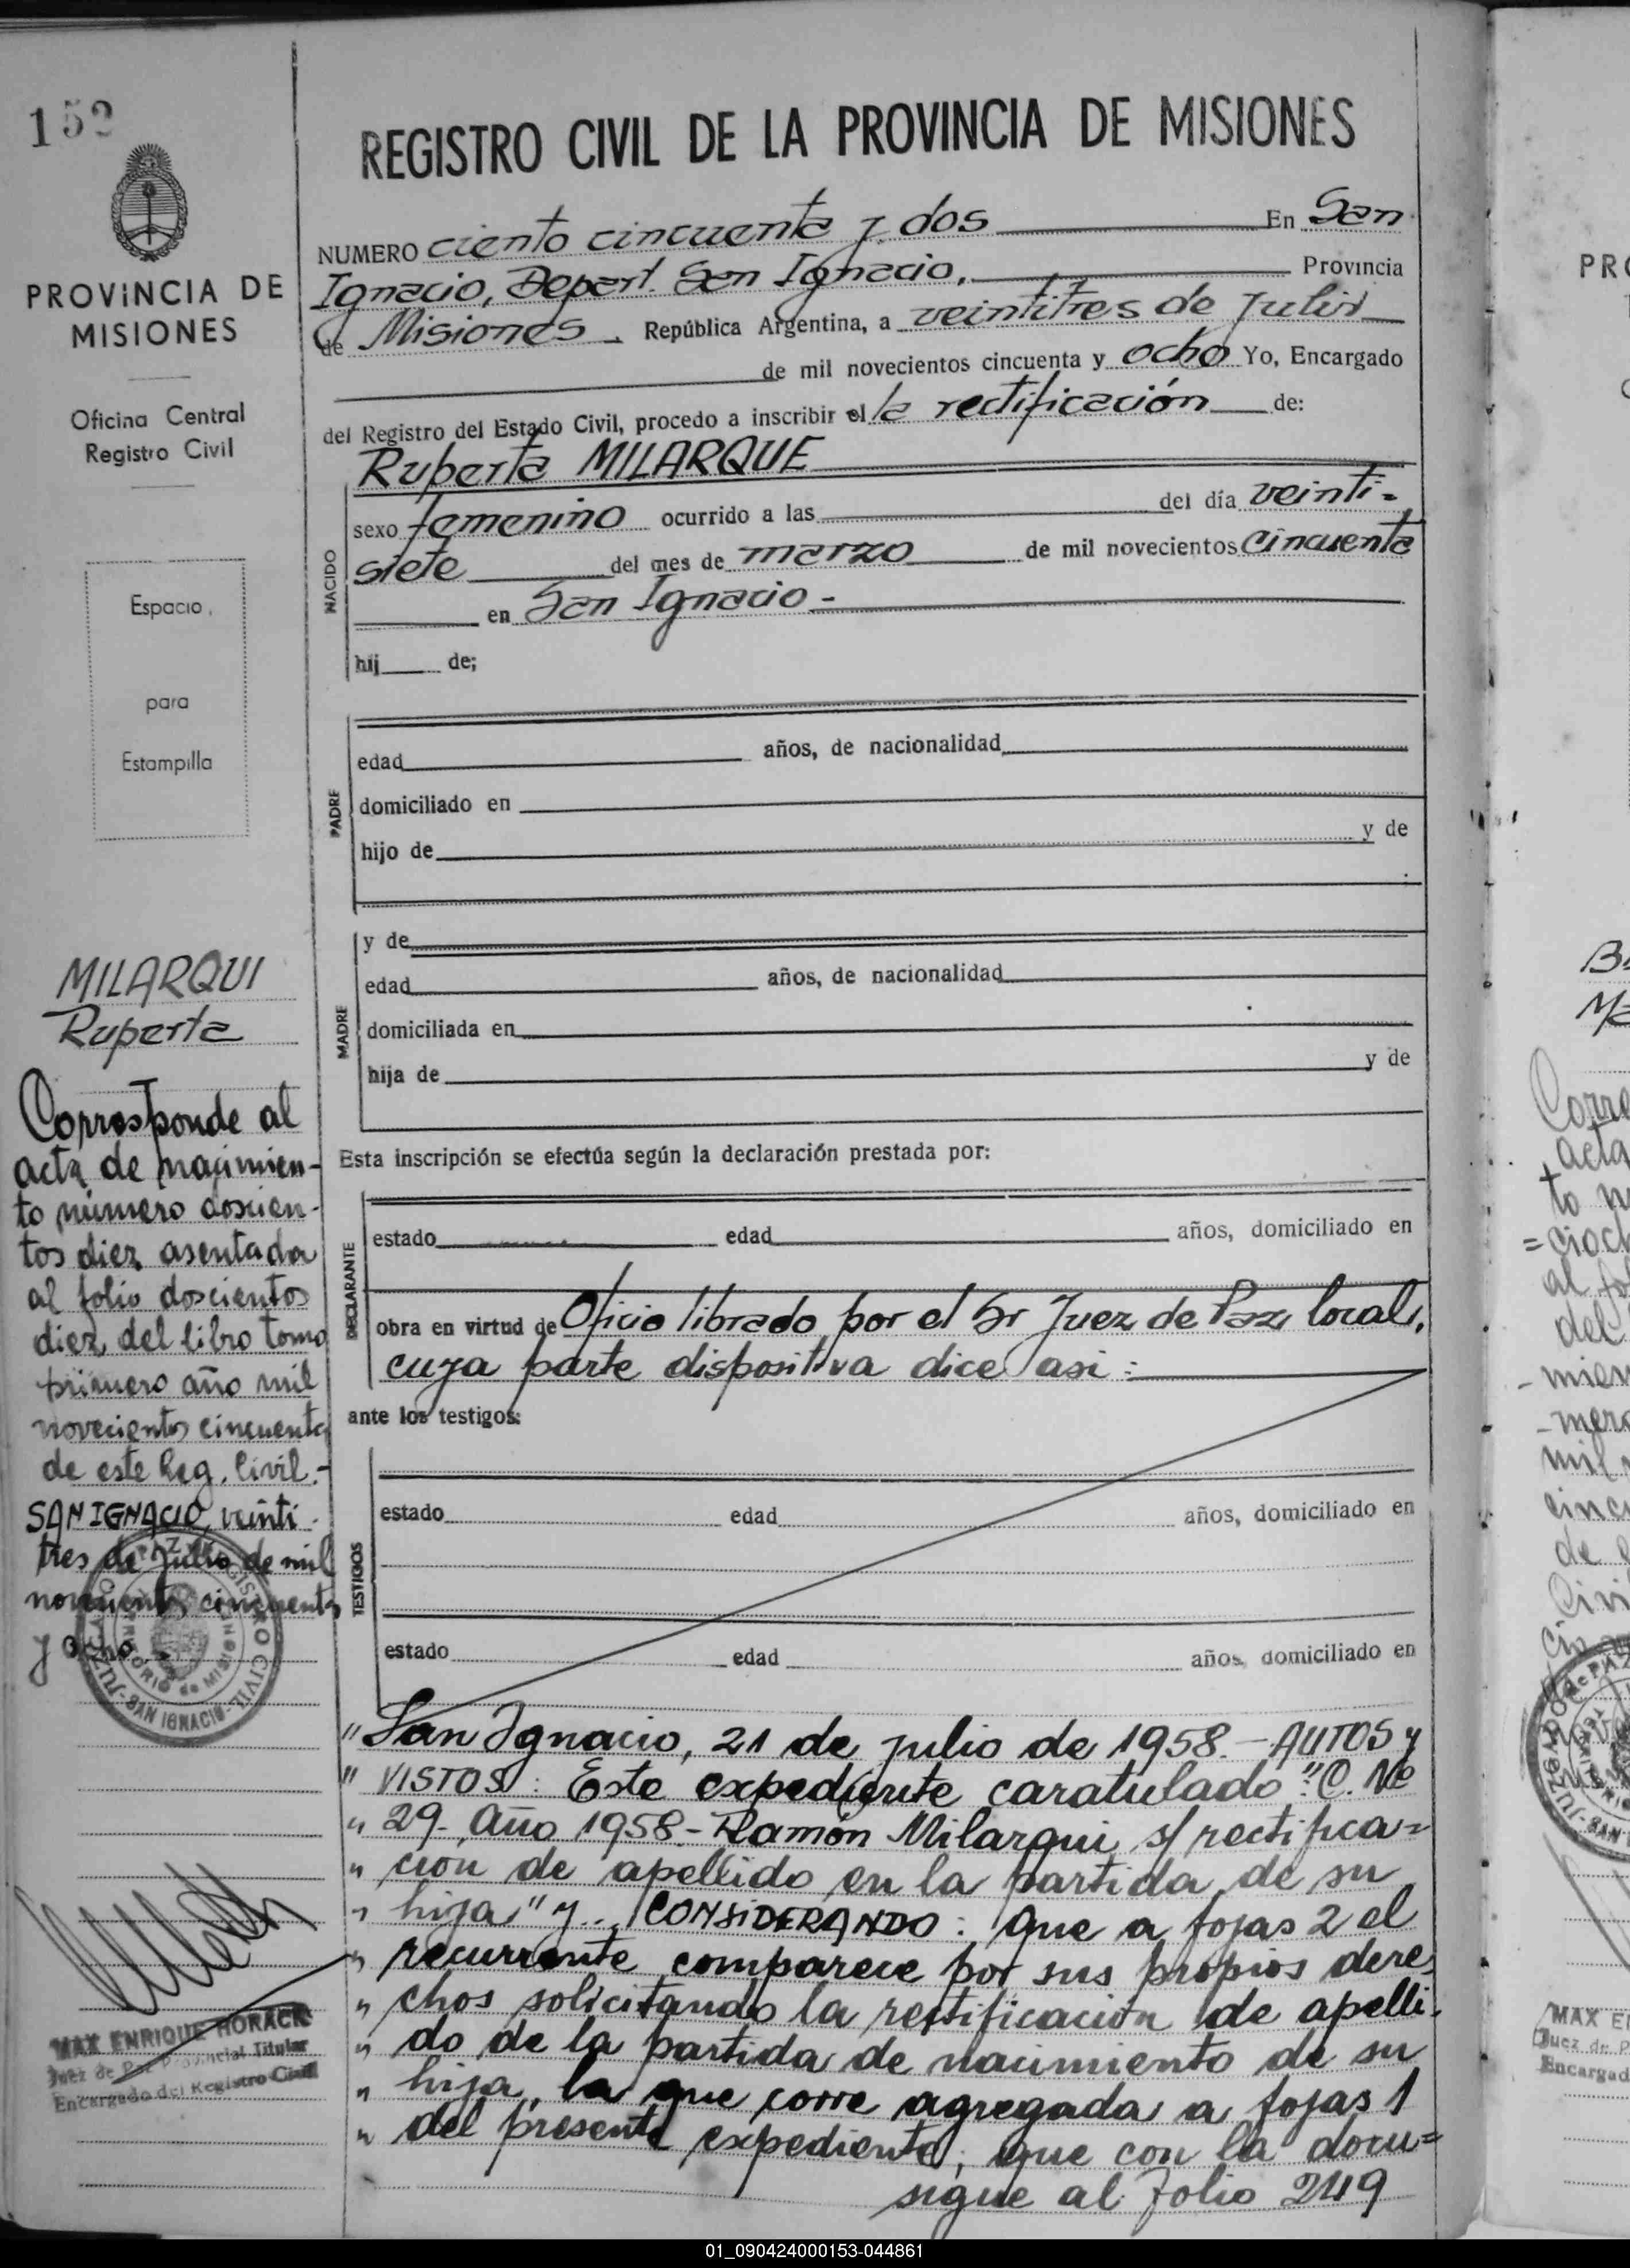 152
PROVINCIA DE
MISIONES
Oficina Central
Registro Civil
Espacio
para
Estampilla
MILARQUI
Ruperta
Corresponde al
acta de nacimien-
to número doscien-
tos diez asentada
al folio doscientos
diez del libro tomo
primero año mil
novecientos cincuenta
de este Reg. Civil.-
SAN IGNACIO, veinti-
tres de Julio de mil
novecientos cincuenta
y ocho.-
REGISTRO CIVIL
SAN IGNACIO
MAX ENRIQUE HORACK
Juez de Paz Provincial Titular
Encargado del Registro Civil
REGISTRO CIVIL DE LA PROVINCIA DE MISIONES
NUMERO ciento cincuenta y dos En San
Ignacio, Depart. San Ignacio, Provincia
de Misiones. República Argentina, a veintitres de Julio
de mil novecientos cincuenta y ocho Yo, Encargado
del Registro del Estado Civil, procedo a inscribir el la rectificación de:
Ruperta MILARQUE
NACIDO
sexo femenino ocurrido a las del día veinti-
siete del mes de marzo de mil novecientos cincuenta
en San Ignacio -
hij de;
PADRE
edad años, de nacionalidad
domiciliado en
hijo de y de
MADRE
y de
edad años, de nacionalidad
domiciliada en
hija de y de
Esta inscripción se efectúa según la declaración prestada por:
DECLARANTE
estado edad años, domiciliado en
obra en virtud de Oficio librado por el Sr Juez de Paz local,
cuya parte dispositiva dice asi:
ante los testigos:
TESTIGOS
estado edad años, domiciliado en
estado edad años, domiciliado en
"San Ignacio, 21 de julio de 1958.- AUTOS y
" VISTOS: Este expediente caratulado: "C. Nº
" 29- Año 1958- Ramón Milarqui s/ rectifica=
" cion de apellido en la partida de su
" hija" y.., CONSIDERANDO: Que a fojas 2 el
" recurrente comparece por sus propios dere
" chos solicitando la rectificación de apelli-
" do de la partida de nacimiento de su
" hija, la que corre agregada a fojas 1
" del presente expediente; que con la docu=
sigue al folio 249
01_090424000153-044861